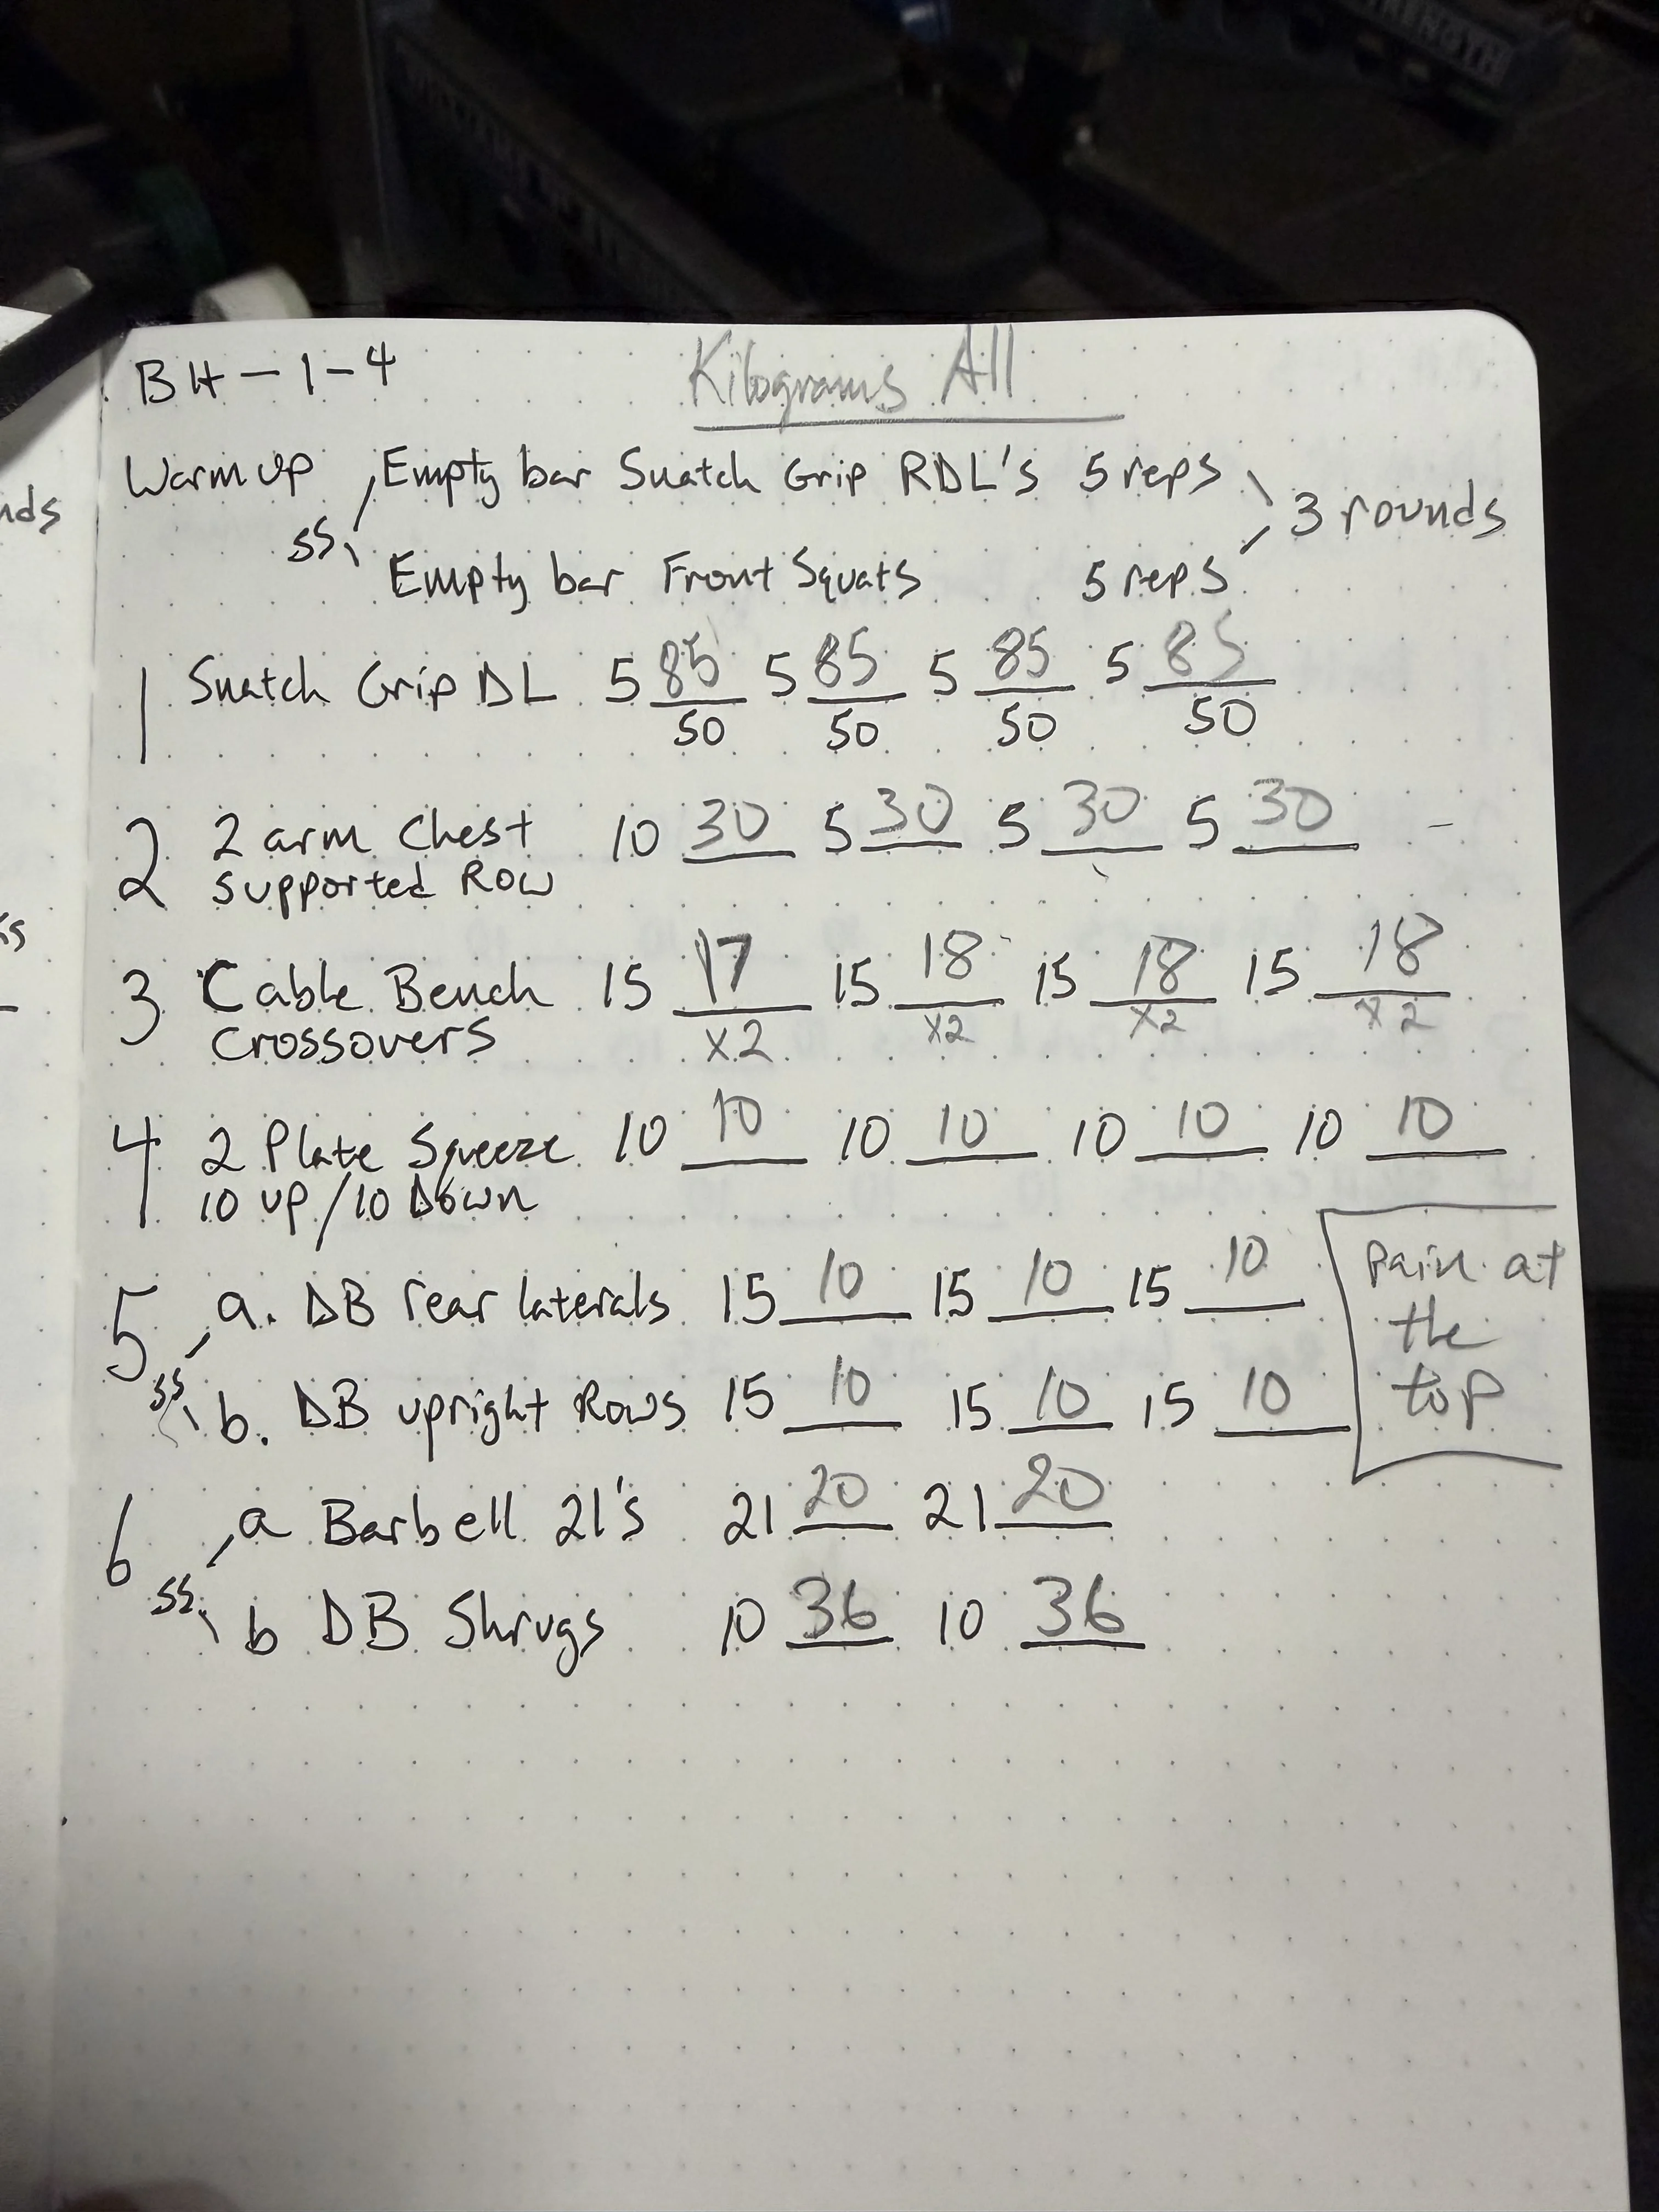 BH-1-4 Kilograms All
Warm up Empty bar Snatch Grip RDL's 5 reps
nds
SS 3 rounds
Empty bar Front Squats 5 reps
1 Snatch Grip DL 5 85 5 85 5 85 5 85
50 50 50 50
2 2 arm Chest 10 30 5 30 5 30 5 30 -
Supported Row
3 Cable Bench 15 17 15 18 15 18 15 18
Crossovers x2 x2 x2 x2
4 2 Plate Squeeze 10 10 10 10 10 10 10 10
10 up/10 Down
5 a. DB rear laterals 15 10 15 10 15 10
SS b. DB upright Rows 15 10 15 10 15 10
Pain at
the
top
6 a Barbell 21's 21 20 21 20
SS b DB Shrugs 10 36 10 36